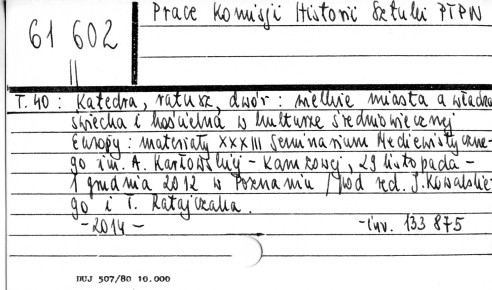 Prace Komisji Historii Sztuki PTPN
61 602
II
T. 40 : Katedra, ratusz, dwór : wielkie miasta a władza
świecka i kościelna w kulturze średniowiecznej
Europy : materiały XXXIII Seminarium Mediewistyczne-
go im. A. Karłowskiej - Kamzowej, 29 listopada -
1 grudnia 2012 w Poznaniu / pod red. J. Kowalskie-
go i T. Ratajczaka.
- 2014 - - inv. 133 875
DUJ 507/80 10.000